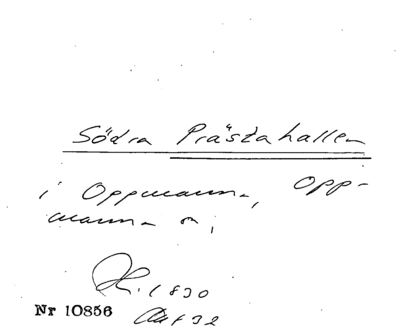 Södra Prästahallen
i Oppmanna, Opp-
manna sn;
1830
Nr 10856